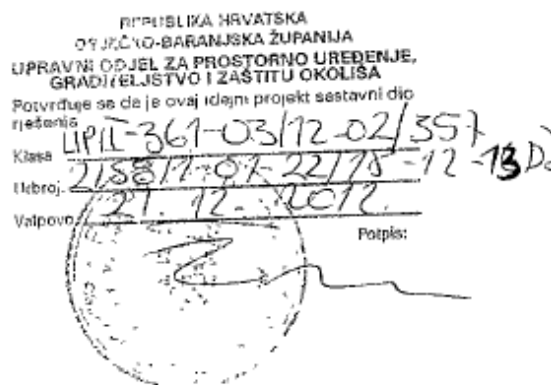 REPUBLIKA HRVATSKA
OSJEČKO-BARANJSKA ŽUPANIJA
UPRAVNI ODJEL ZA PROSTORNO UREĐENJE,
GRADITELJSTVO I ZAŠTITU OKOLIŠA
Potvrđuje se da je ovaj idejni projekt sastavni dio
rješenja
Klasa UP/I-361-03/12-02/357
Urbroj. 2158/1-01-22/15-12-13
Valpovo, 27. 12. 2012.
Potpis: